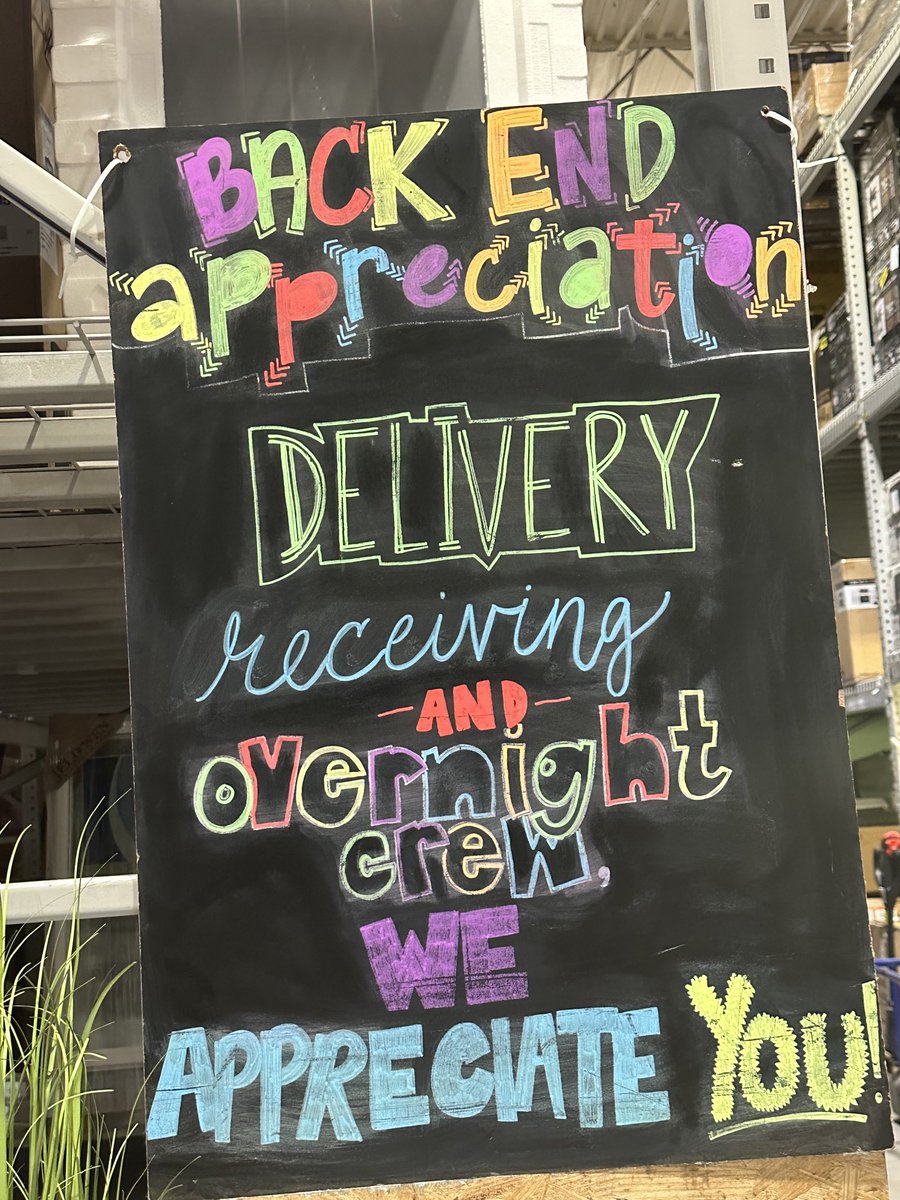 BACK END
appreciation
DELIVERY
receiving
- AND -
overnight
crew,
WE
APPRECIATE YOU!